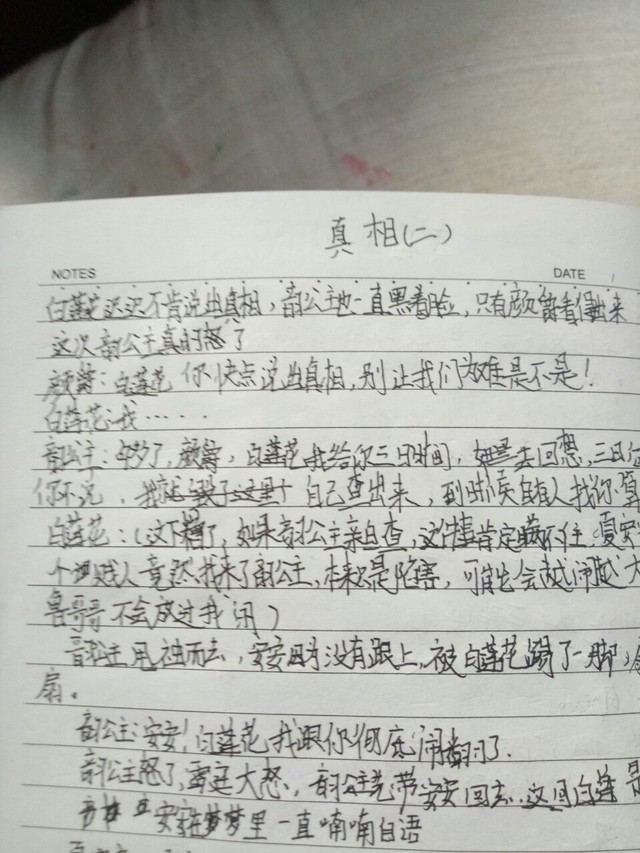 真相(二)
NOTES DATE
白莲花迟迟不肯说出真相，韵公主也一直黑着脸，只有颜 看得出来
这次韵公主真的怒了
颜 ：白莲花 你快点说出真相,别让我们为难是不是!
白莲花:我·····
韵公主：够了,颜 ，白莲花我给你三日时间， 去回想,三日
你不说．我 自己查出来，到时候自有人找你算
白莲花：(这下糟了，如果韵公主亲自查，这件事肯定瞒不住．夏安
个 贱人竟然找来了韵公主,本来只是陷害，可能也会越闹越大
鲁哥哥不会放过我的)
韵公主甩袖而去，安安因为没有跟上,被白莲花踢了一脚,
扇。
韵公主:安安!白莲花我跟你彻底闹翻了.
韵公主怒了,雷霆大怒.，韵公主先带安安回去.这间白莲
安安在梦里一直喃喃自语